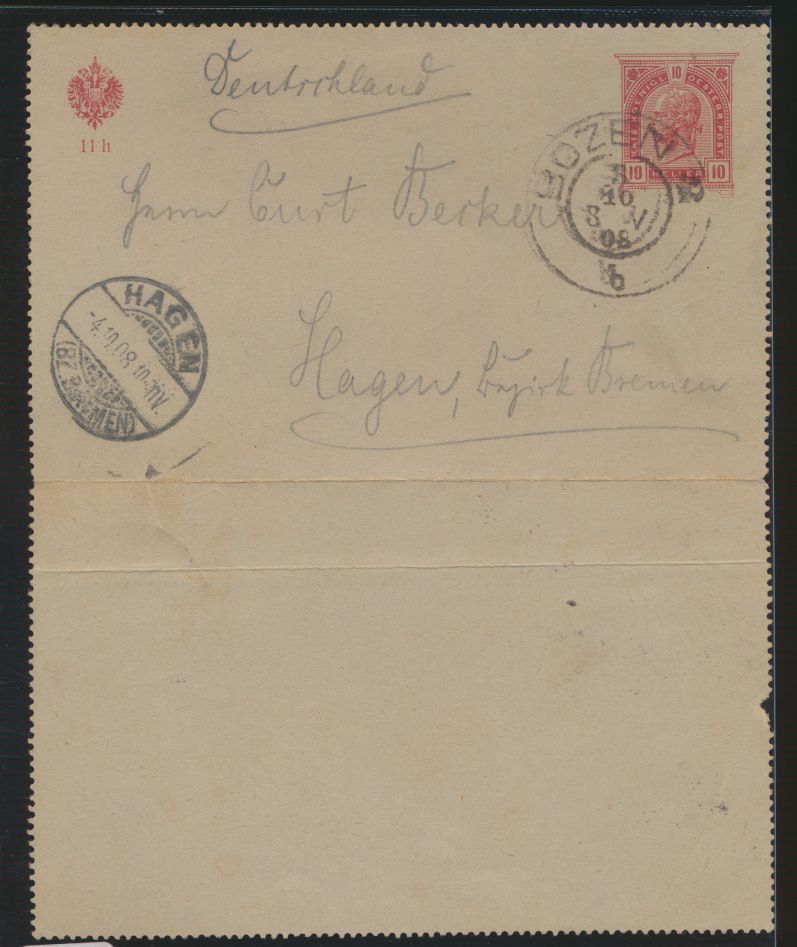 Deutschland
11 h
10
KAIS. KOENIGL. OESTERR. POST.
10 HELLER 10
BOZEN 2
3
10
8 V
08
b
Herrn Curt Becker
HAGEN
-4.10.08.10-11V.
(BZ. BREMEN)
Hagen, Bezirk Bremen